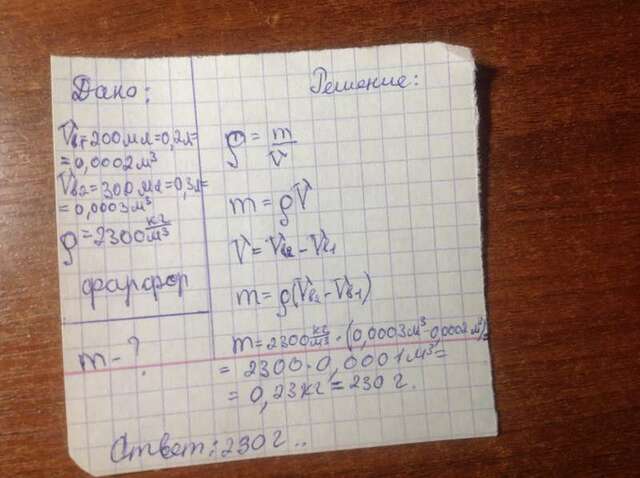 Дано:
V⃗в1=200мл=0,2л=
=0,0002м³
V⃗в2=300мл=0,3л=
=0,0003м³
ρ=2300 кг/м³
фарфор
m-?
Решение:
ρ = m/V⃗
m=ρV⃗
V⃗=V⃗в2-V⃗в1
m=ρ(V⃗в2-V⃗в1)
m=2300 кг/м³·(0,0003м³-0,0002м³)=
= 2300·0,0001м³=
= 0,23кг=230г.
Ответ:230г..